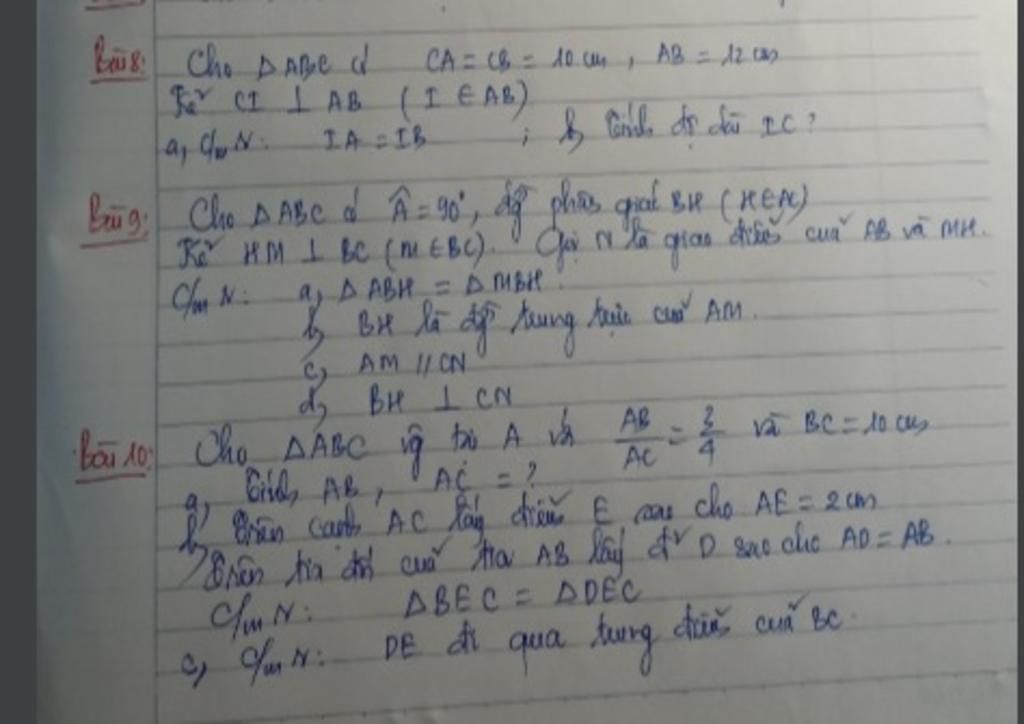 Bài 8: Cho △ABC có CA = CB = 10 cm, AB = 12 cm
Kẻ CI ⊥ AB (I ∈ AB)
a, C/m R: IA = IB ; b, Tính độ dài IC?
Bài 9: Cho △ABC có Â = 90°, đg phân giác BH (H ∈ AC)
Kẻ HM ⊥ BC (M ∈ BC). Gọi N là giao điểm của AB và MH.
C/m R: a, △ABH = △MBH.
b, BH là đg trung trực của AM.
c, AM // CN
d, BH ⊥ CN
Bài 10: Cho △ABC vg tại A và AB/AC = 3/4 và BC = 10 cm
a, Tính AB, AC = ?
b, Trên cạnh AC lấy điểm E sao cho AE = 2 cm
Trên tia đối của tia AB lấy đ' D sao cho AD = AB.
C/m R: △BEC = △DEC
c, C/m R: DE đi qua trung điểm của BC.